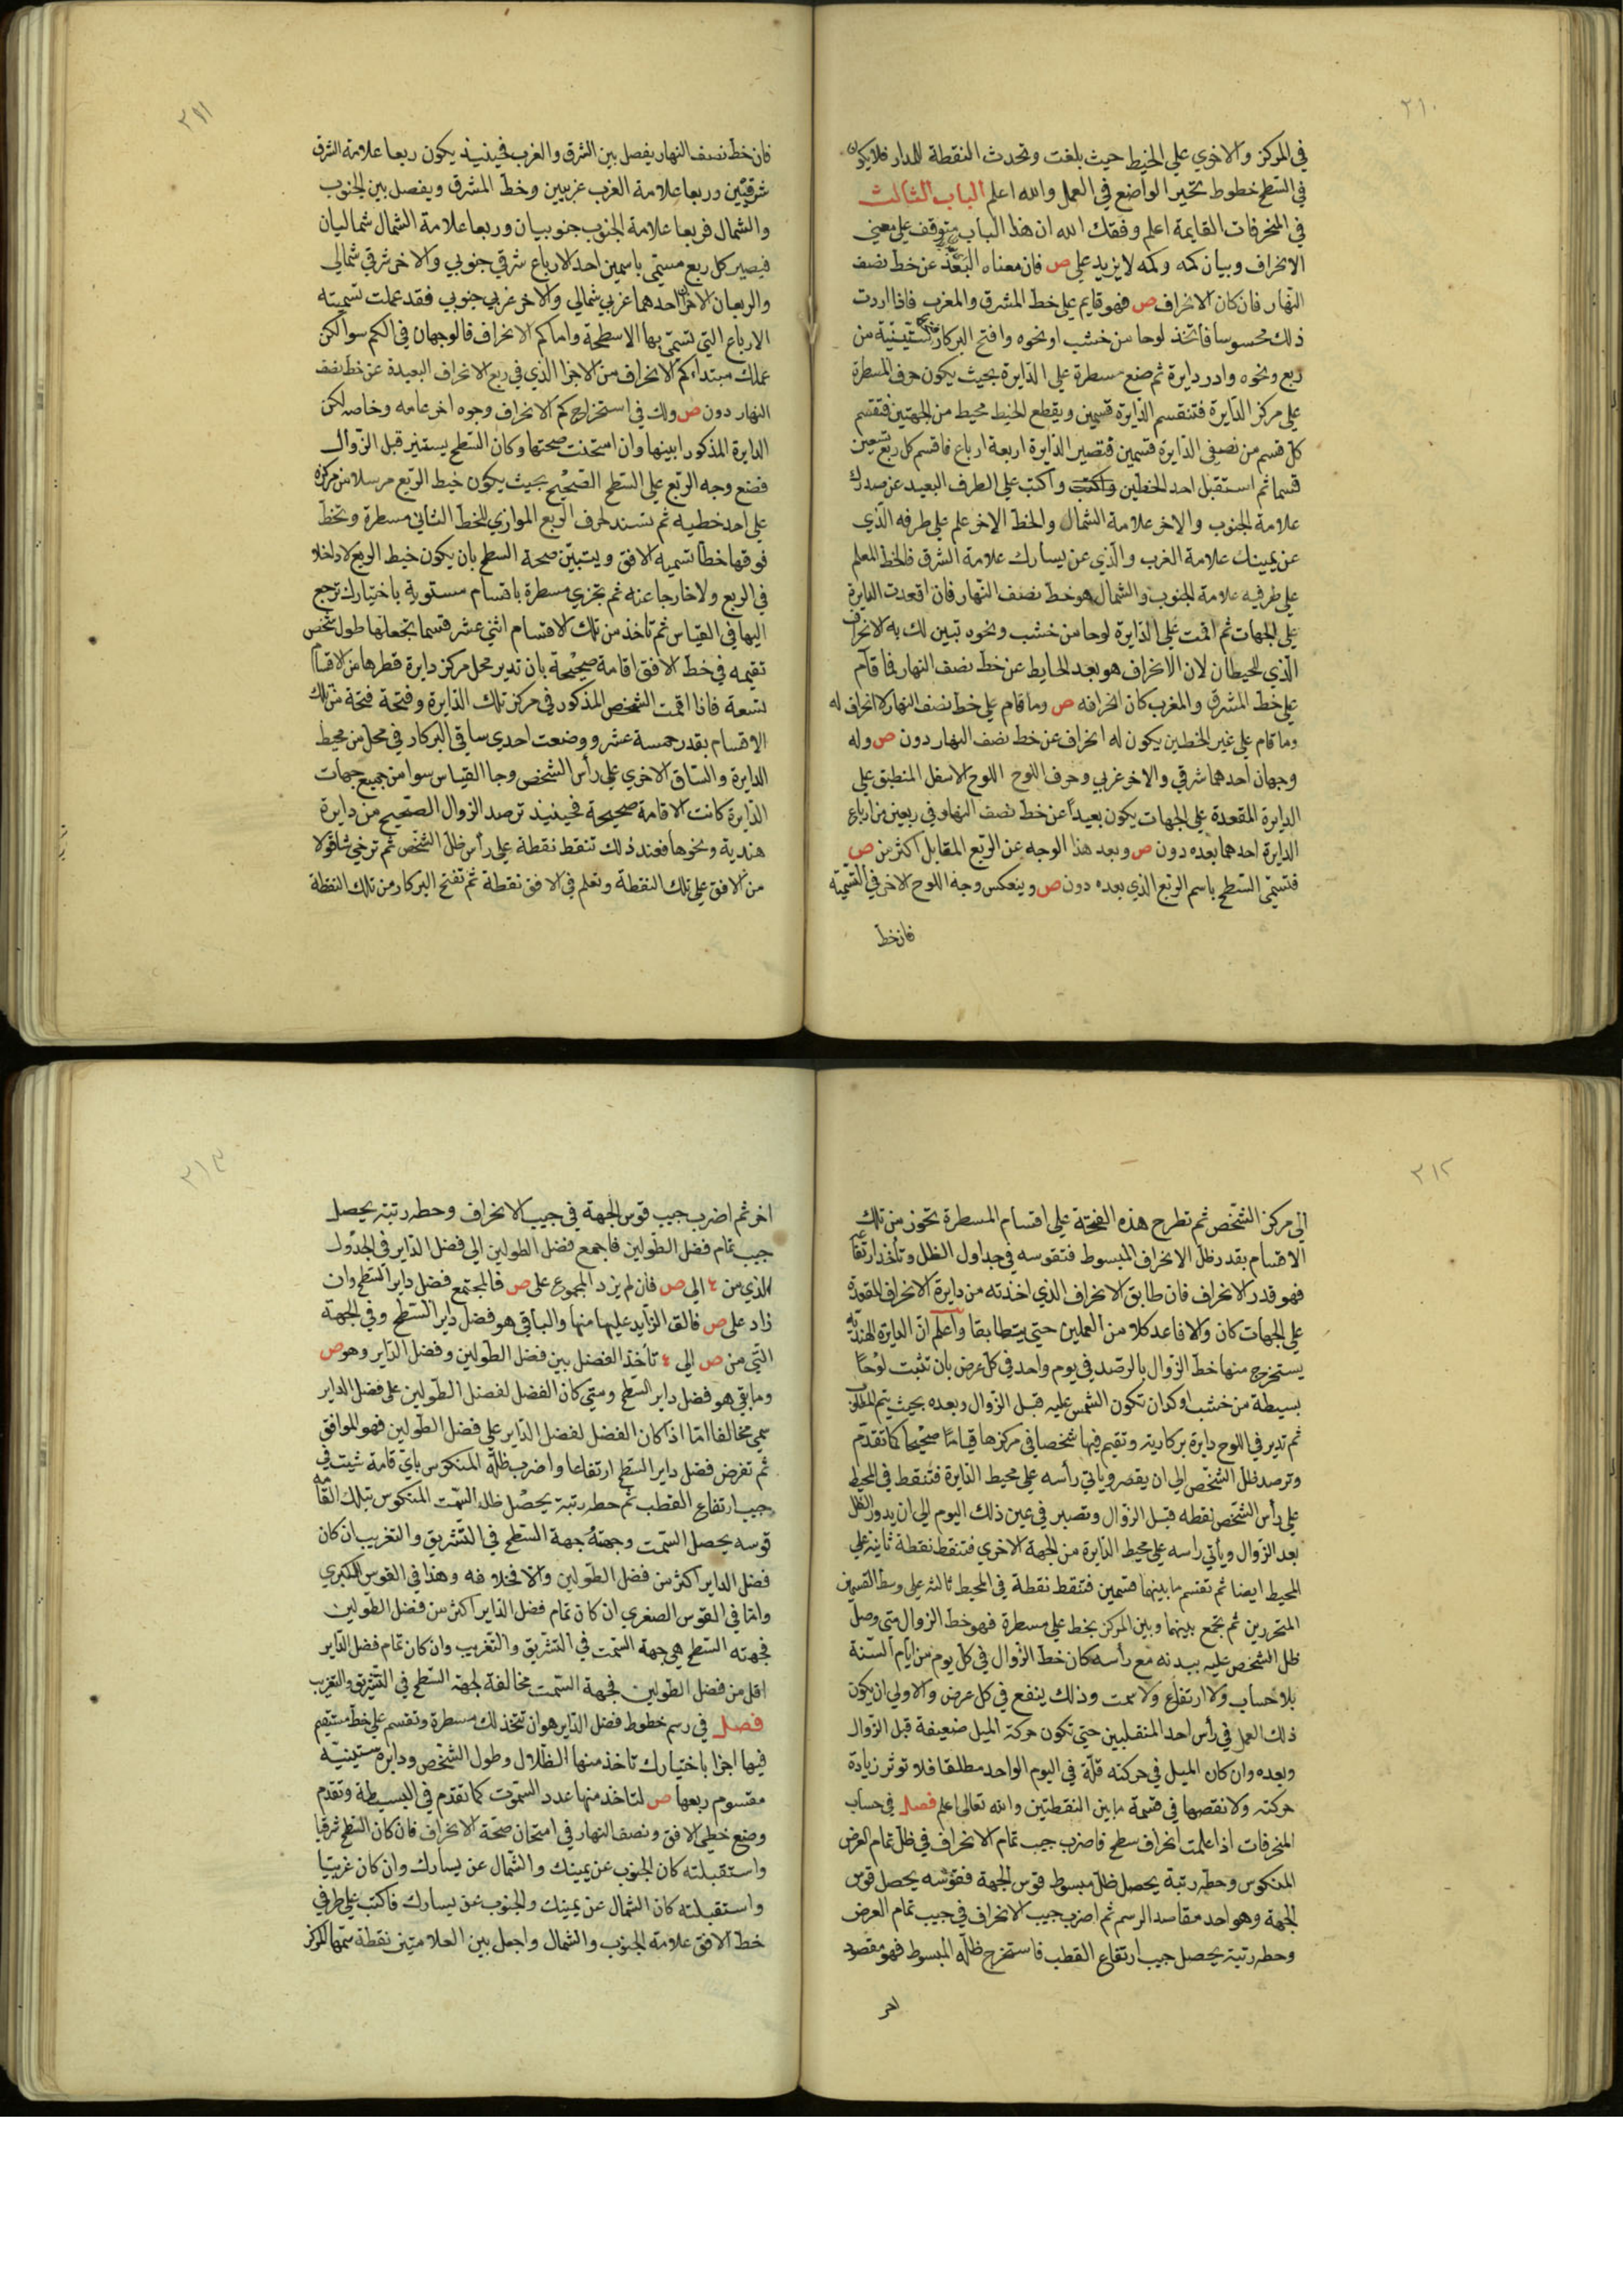 ٢١٠
في المركز والاخري علي الخيط حيث بلغت وتحدث النقطة للمدار فلا يكون
في السطح خطوط تحير الواضع في العمل والله اعلم الباب الثالث
في المنحرفات القايمة اعلم وفقك الله ان هذا الباب متوقف علي معني
الانحراف وبيان كمه وكمه لا يزيد علي ص فان معناه البعد عن خط نصف
النهار فان كان الانحراف ص فهو قايم علي خط المشرق والمغرب فاذا اردت
ذلك محسوسا فاتخذ لوحا من خشب او نحوه وافتح البركار فتحة ستينية من
ربع ونحوه وادر دايرة ثم ضع مسطرة علي الدايرة بحيث يكون حرف المسطرة
علي مركز الدايرة فتنقسم الدايرة قسمين ويقطع الخيط محيط من الجهتين فتقسم
كل قسم من نصفي الدايرة قسمين فتصير الدايرة اربعة ارباع فاقسم كل ربع تسعين
قسما ثم استقبل احد الخطين واكتب واكتب علي الطرف البعيد عن صدرك
علامة الجنوب والاخر علامة الشمال والخط الاخر علم علي طرفه الذي
عن يمينك علامة الغرب والذي عن يسارك علامة الشرق فالخط المعلم
علي طرفيه علامة الجنوب والشمال هو خط نصف النهار فان اقعدت الدايرة
علي الجهات ثم اقمت علي الدايرة لوحا من خشب ونحوه تبين لك به الانحراف
الذي للحيطان لان الانحراف هو بعد الحايط عن خط نصف النهار فما قام
علي خط المشرق والمغرب كان انحرافه ص وما قام علي خط نصف النهار لا انحراف له
وما قام علي غير الخطين يكون له انحراف عن خط نصف النهار دون ص وله
وجهان احدهما شرقي والاخر غربي وحرف اللوح اللوح الاسفل المنطبق علي
الدايرة المقعدة علي الجهات يكون بعيداً عن خط نصف النهار وفي ربعين من ارباع
الدايرة احدهما بعده دون ص وبعد هذا الوجه عن الربع المقابل اكثر من ص
فتسمي السطح باسم الربع الذي بعده دون ص وينعكس وجه اللوح الاخر في التسمية
فان خط
٢١١
فان خط نصف النهار يفصل بين الشرق والغرب فحينيذ يكون ربعا علامة الشرق
شرقيين وربعا علامة الغرب غربيين وخط المشرق ويفصل بين الجنوب
والشمال فربعا علامة الجنوب جنوبيان وربعا علامة الشمال شماليان
فيصير كل ربع مستمي باسمين احد الارباع شرقي جنوبي والاخر شرقي شمالي
والربعان الاخران احدهما غربي شمالي والاخر غربي جنوبي فقد عملت تسمية
الارباع التي تسمي بها الاسطحة واما كم الانحراف فالوجهان في الكم سوا لكن
عملك مبتداء كم الانحراف من الاجزا الذي في ربع الانحراف البعيدة عن خط نصف
النهار دون ص ولك في استخراج كم الانحراف وجوه اخر عامه وخاصه لكن
الدايرة المذكور ابينها وان استحنت صحتها وكان السطح يستنير قبل الزوال
فضع وجه الربع علي السطح الصحيح بحيث يكون خيط الربع مرسلا من مركزه
علي احد خطيه ثم تسند حرف الربع الموازي للخط الثاني مسطرة وتخط
فوقها خطا تسميه الافق ويتبين صحة السطح بان يكون خيط الربع لا داخلا
في الربع ولا خارجا عنه ثم تجزي مسطرة باقسام مستوية باختيارك ترجع
اليها في القياس ثم تاخذ من تلك الاقسام اثني عشر قسما تجعلها طول شخص
تقيمه في خط الافق اقامة صحيحة بان تدير محل مركز دايرة قطرها من الاقسام
تسعة فاذا اقمت الشخص المذكور في مركز تلك الدايرة وفتحة فتحة من تلك
الاقسام بقدر خمسة عشر ووضعت احدي ساقي البركار في محل من محيط
الدايرة والساق الاخري علي رأس الشخص وجا القياس سوا من جميع جهات
الدايرة كانت الاقامة صحيحة فحينيذ ترصد الزوال الصحيح من دايرة
هندية ونحوها فعند ذلك تنقط نقطة علي رأس ظل الشخص ثم ترخي شاقولا
من الافق علي تلك النقطة وتعلم في الافق نقطة ثم تفتح البركار من تلك النقطة
٢١٢
الي مركز الشخص ثم تطرح هذه الفتحة علي اقسام المسطرة تحوز من تلك
الاقسام بقدر ظل الانحراف المبسوط فتقوسه في جداول الظل وتأخذ ارتفاعا
فهو قدر الانحراف فان طابق الانحراف الذي اخذته من دايرة الانحراف المقعدة
علي الجهات كان والا فاعد كلا من العملين حتي يتطابقا واعلم ان الدايرة الهندية
يستخرج منها خط الزوال بالرصد في يوم واحد في كل عرض بان تثبت لوحا
بسيطة من خشب او كدان تكون الشمس عليه قبل الزوال وبعده بحيث يتم المطلوب
ثم تدير في اللوح دايرة بركارية وتقيم فيها شخصا في مركزها قياما صحيحا كما تقدم
وترصد ظل الشخص الي ان يقصر وياتي رأسه علي محيط الدايرة فتنقط في المحيط
علي رأس الشخص نقطه قبل الزوال وتصبر في عين ذلك اليوم الي ان يدور الظل
بعد الزوال ويأتي راسه علي محيط الدايرة من الجهة الاخري فتنقط نقطة ثانية علي
المحيط ايضا ثم تقسم ما بينهما قسمين فتنقط نقطة في المحيط ثالثه علي وسط القسمين
المتحررين ثم تجمع بينهما وبين المركز بخط علي مسطرة فهو خط الزوال متي وصل
ظل الشخص عليه ببدنه مع رأسه كان خط الزوال في كل يوم من ايام السنة
بلا حساب ولا ارتفاع ولا سمت وذلك ينفع في كل عرض والاولي ان يكون
ذلك العمل في رأس احد المنقلبين حتي تكون حركة الميل ضعيفة قبل الزوال
وبعده وان كان الميل في حركته قلة في اليوم الواحد مطلقا فلا توثر زيادة
حركته ولا نقصها في قسمة ما بين النقطتين والله تعالي اعلم فصل في حساب
المنحرفات اذا علمت انحراف سطح فاضرب جيب تمام الانحراف في ظل تمام العرض
المنكوس وحطه رتبة يحصل ظل مبسوط قوس الجهة فقوسه يحصل قوس
الجهة وهو احد مقاصد الرسم ثم اضرب جيب الانحراف في جيب تمام العرض
وحطه رتبة يحصل جيب ارتفاع القطب فاستخرج ظله المبسوط فهو مقصود
اخر
٢١٣
اخر ثم اضرب جيب قوس الجهة في جيب الانحراف وحطه رتبة يحصل
جيب تمام فضل الطولين فاجمع فضل الطولين الي فضل الداير في الجدول
الذي من ٤ الي ص فان لم يزد المجموع علي ص فالمجتمع فضل داير السطح وان
زاد علي ص فالق الزايد عليها منها والباقي هو فضل داير السطح وفي الجهة
التي من ص الي ٤ تأخذ الفضل بين فضل الطولين وفضل الداير وهو ص
وما بقي هو فضل داير السطح ومتي كان الفضل لفضل الطولين علي فضل الداير
سمي مخالفا اما اذا كان الفضل لفضل الداير علي فضل الطولين فهو الموافق
ثم تفرض فضل داير السطح ارتفاعا واضرب ظله المنكوس باي قامة شيت في
جيب ارتفاع القطب ثم حطه رتبة يحصل ظل السمت المنكوس بتلك القامه
قوسه يحصل السمت وجهته جهة السطح في التشريق والتغريب ان كان
فضل الداير اكثر من فضل الطولين والا فخلافه وهذا في القوس الكبري
واما في القوس الصغري ان كان تمام فضل الداير اكثر من فضل الطولين
فجهته السطح هي جهة السمت في التشريق والتغريب وان كان تمام فضل الداير
اقل من فضل الطولين فجهة السمت مخالفة لجهة السطح في التشريق والتغريب
فصل في رسم خطوط فضل الداير هو ان تتخذ لك مسطرة وتقسم علي خط مستقيم
فيها اجزا باختيارك تاخذ منها الظلال وطول الشخص ودايرة ستينية
مقسوم ربعها ص لتاخذ منها عدد السموت كما تقدم في البسيطة وتقدم
وضع خطي الافق ونصف النهار في امتحان صحة الانحراف فان كان السطح شرقيا
واستقبلته كان الجنوب عن يمينك والشمال عن يسارك وان كان غربيا
واستقبلته كان الشمال عن يمينك والجنوب عن يسارك فاكتب علي طرفي
خط الافق علامة الجنوب والشمال واجعل بين العلامتين نقطة سمها المركز